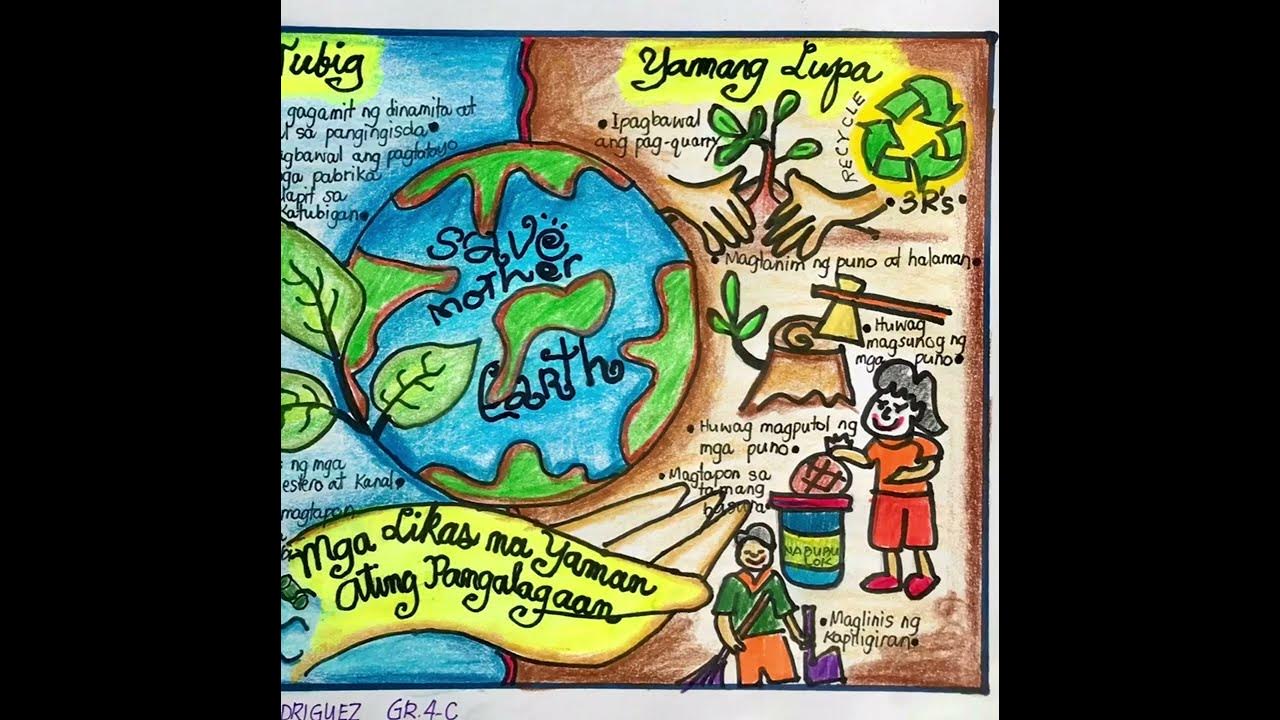 Tubig
gagamit ng dinamita at
sa pangingisda
ang pagtatayo
pabrika
sa
Katubigan
ng mga
estero at Kanal
magtapon
save
mother
Earth
Mga Likas na Yaman
ating Pangalagaan
Yamang Lupa
• Ipagbawal
ang pag-quarry
RECYCLE
• 3R's •
• Magtanim ng puno at halaman •
• Huwag
magsunog ng
mga puno •
• Huwag magputol ng
mga puno •
• Magtapon sa
tamang
basura •
NABUBU
LOK
• Maglinis ng
kapiligiran •
DRIGUEZ GR.4-C